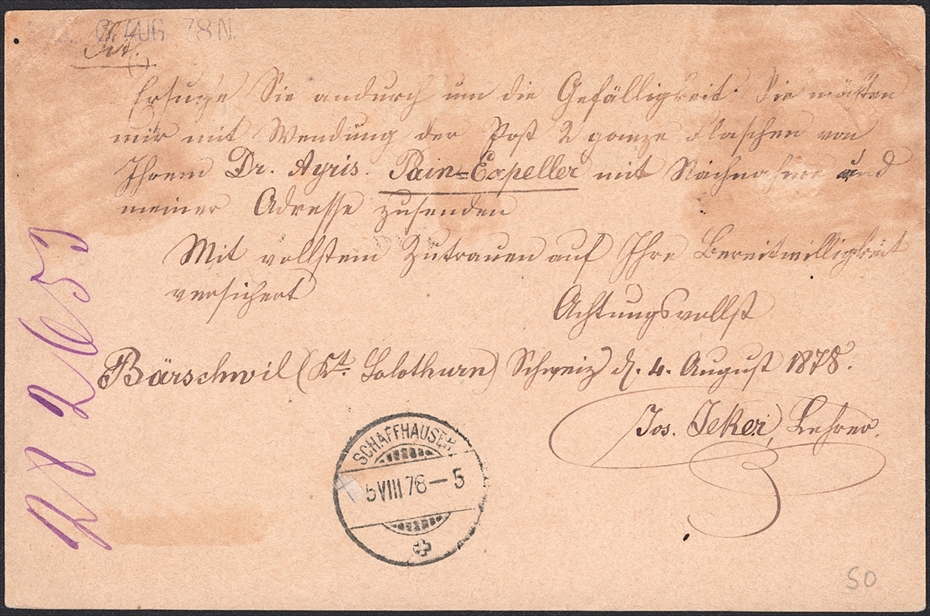 AUG. 78 N.
Tit.
Ersuche Sie andurch um die Gefälligkeit. Sie möchten
mir mit Wendung der Post 2 ganze Flaschen von
Ihrem Dr. Ayris. Pain=Expeller mit Nachnahme und
meiner Adresse zusenden
Mit vollstem Zutrauen auf Ihre Bereitwilligkeit
versichert
Achtungsvollst
Bärschwil (Kt. Solothurn) Schweiz d. 4. August 1878.
Jos. Jeker, Lehrer.
SCHAFFHAUSEN
5 VIII 78 – 5
282653
50